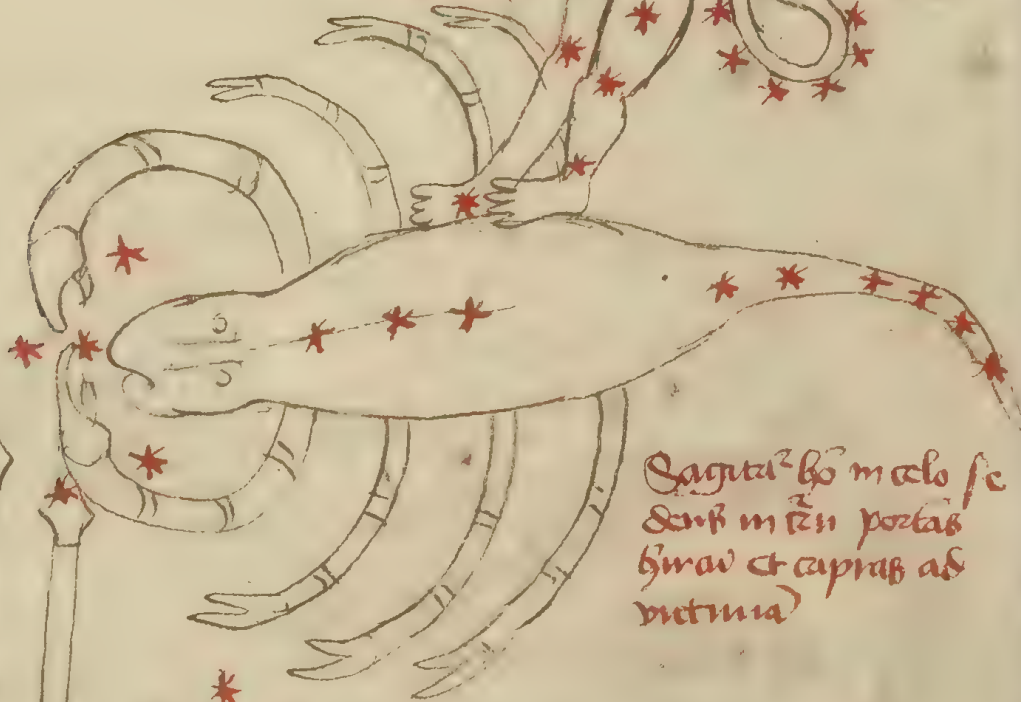 Sagita² hō in celo se
dens in t̄rā portās
hircū et capras ad
victimā